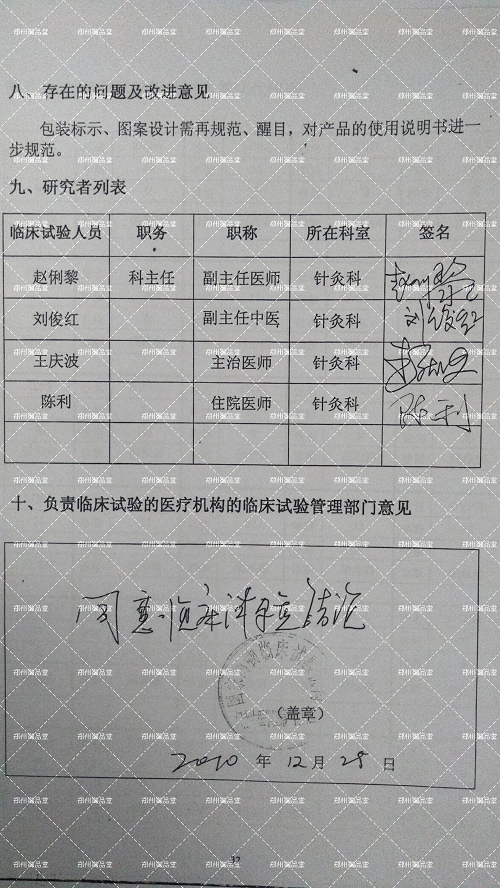 八、存在的问题及改进意见
包装标示、图案设计需再规范、醒目，对产品的使用说明书进一
步规范。
九、研究者列表
临床试验人员 职务 职称 所在科室 签名
赵俐黎 科主任 副主任医师 针灸科
刘俊红 副主任中医 针灸科 刘俊红
王庆波 主治医师 针灸科
陈利 住院医师 针灸科 陈利
十、负责临床试验的医疗机构的临床试验管理部门意见
同意临床试验结论
（盖章）
2010 年 12 月 28 日
32